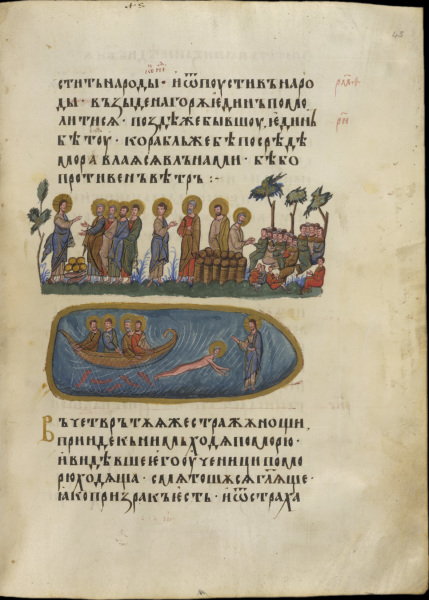 ститънароды · иѿпоустивънаро
ды · възыденагорѫ҆единъпомо
литисѧ · поздѣжебывшоу, единь
бѣтоу · корабльжебѣпосрѣдѣ
морѣвлаѧсѧвлънами · бѣбо
противенъвѣтръ :~
Въчетврътѫѫжестражѫнощи,
прииде къ нимьходѧпоморю ·
ивидѣвшеиегооучениципомо
рюходѧща · смѧтошѫсѧгл҃ѧще ·
ꙗкопризракъесть · иѿстраха